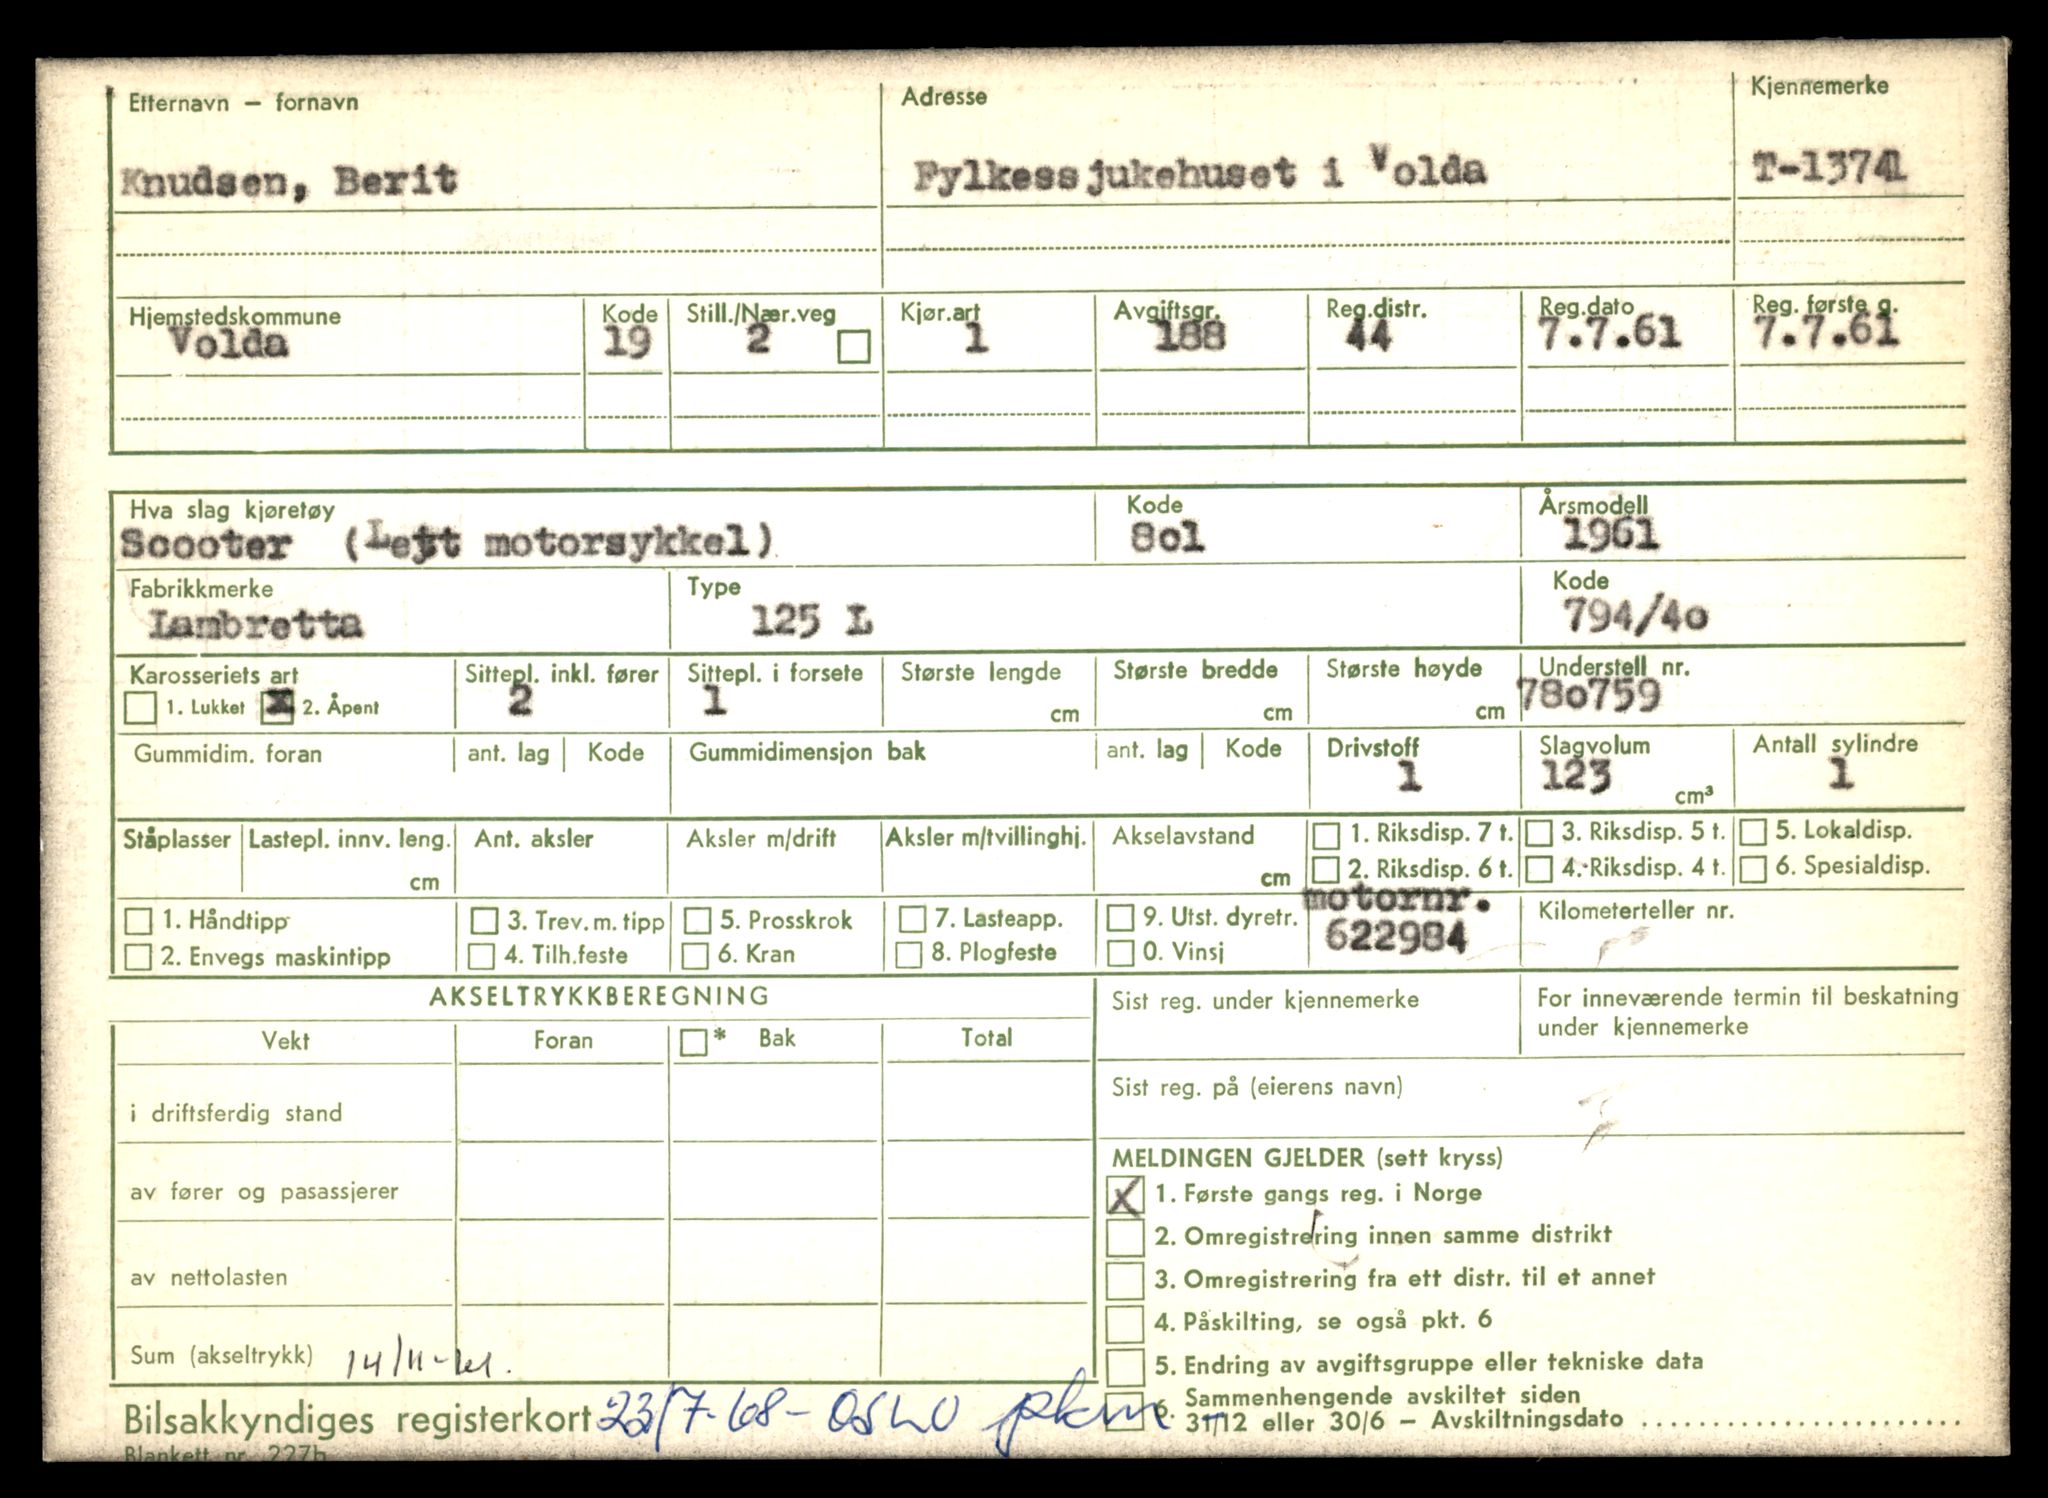 Etternavn – fornavn Adresse Kjennemerke
Knudsen, Berit Fylkessjukehuset i Volda T-13741
Hjemstedskommune Kode Still./Nær.veg Kjør.art Avgiftsgr. Reg.distr. Reg.dato Reg. første g.
Volda 19 2 1 188 44 7.7.61 7.7.61
Hva slag kjøretøy Kode Årsmodell
Scooter (Lett motorsykkel) 8o1 1961
Fabrikkmerke Type Kode
Lambretta 125 L 794/4o
Karosseriets art Sittepl. inkl. fører Sittepl. i forsete Største lengde Største bredde Største høyde Understell nr.
1. Lukket X 2. Åpent 2 1 cm cm cm 78o759
Gummidim. foran ant. lag Kode Gummidimensjon bak ant. lag Kode Drivstoff Slagvolum Antall sylindre
1 123 cm³ 1
Ståplasser Lastepl. innv. leng. Ant. aksler Aksler m/drift Aksler m/tvillinghj. Akselavstand 1. Riksdisp. 7 t. 3. Riksdisp. 5 t. 5. Lokaldisp.
cm cm 2. Riksdisp. 6 t. 4. Riksdisp. 4 t. 6. Spesialdisp.
motornr.
1. Håndtipp 3. Trev. m. tipp 5. Prosskrok 7. Lasteapp. 9. Utst. dyretr. Kilometerteller nr.
622984
2. Envegs maskintipp 4. Tilh.feste 6. Kran 8. Plogfeste 0. Vinsj
AKSELTRYKKBEREGNING Sist reg. under kjennemerke For inneværende termin til beskatning
under kjennemerke
Vekt Foran * Bak Total
Sist reg. på (eierens navn)
i driftsferdig stand
MELDINGEN GJELDER (sett kryss)
av fører og pasassjerer X 1. Første gangs reg. i Norge
2. Omregistrering innen samme distrikt
av nettolasten 3. Omregistrering fra ett distr. til et annet
4. Påskilting, se også pkt. 6
Sum (akseltrykk) 5. Endring av avgiftsgruppe eller tekniske data
6. Sammenhengende avskiltet siden
Bilsakkyndiges registerkort 23/7-68 – OSLO 31–12 eller 30/6 – Avskiltningsdato
Blankett nr. 227b